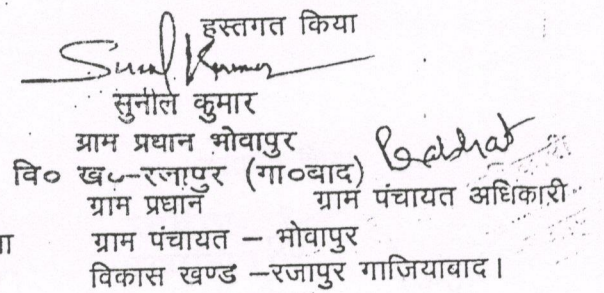 हस्तगत किया
Sunil Kumar
सुनील कुमार
ग्राम प्रधान भोवापुर
वि० ख०-रजापुर (गा०बाद)
ग्राम प्रधान ग्राम पंचायत अधिकारी
ग्राम पंचायत – भोवापुर
विकास खण्ड –रजापुर गाजियाबाद।